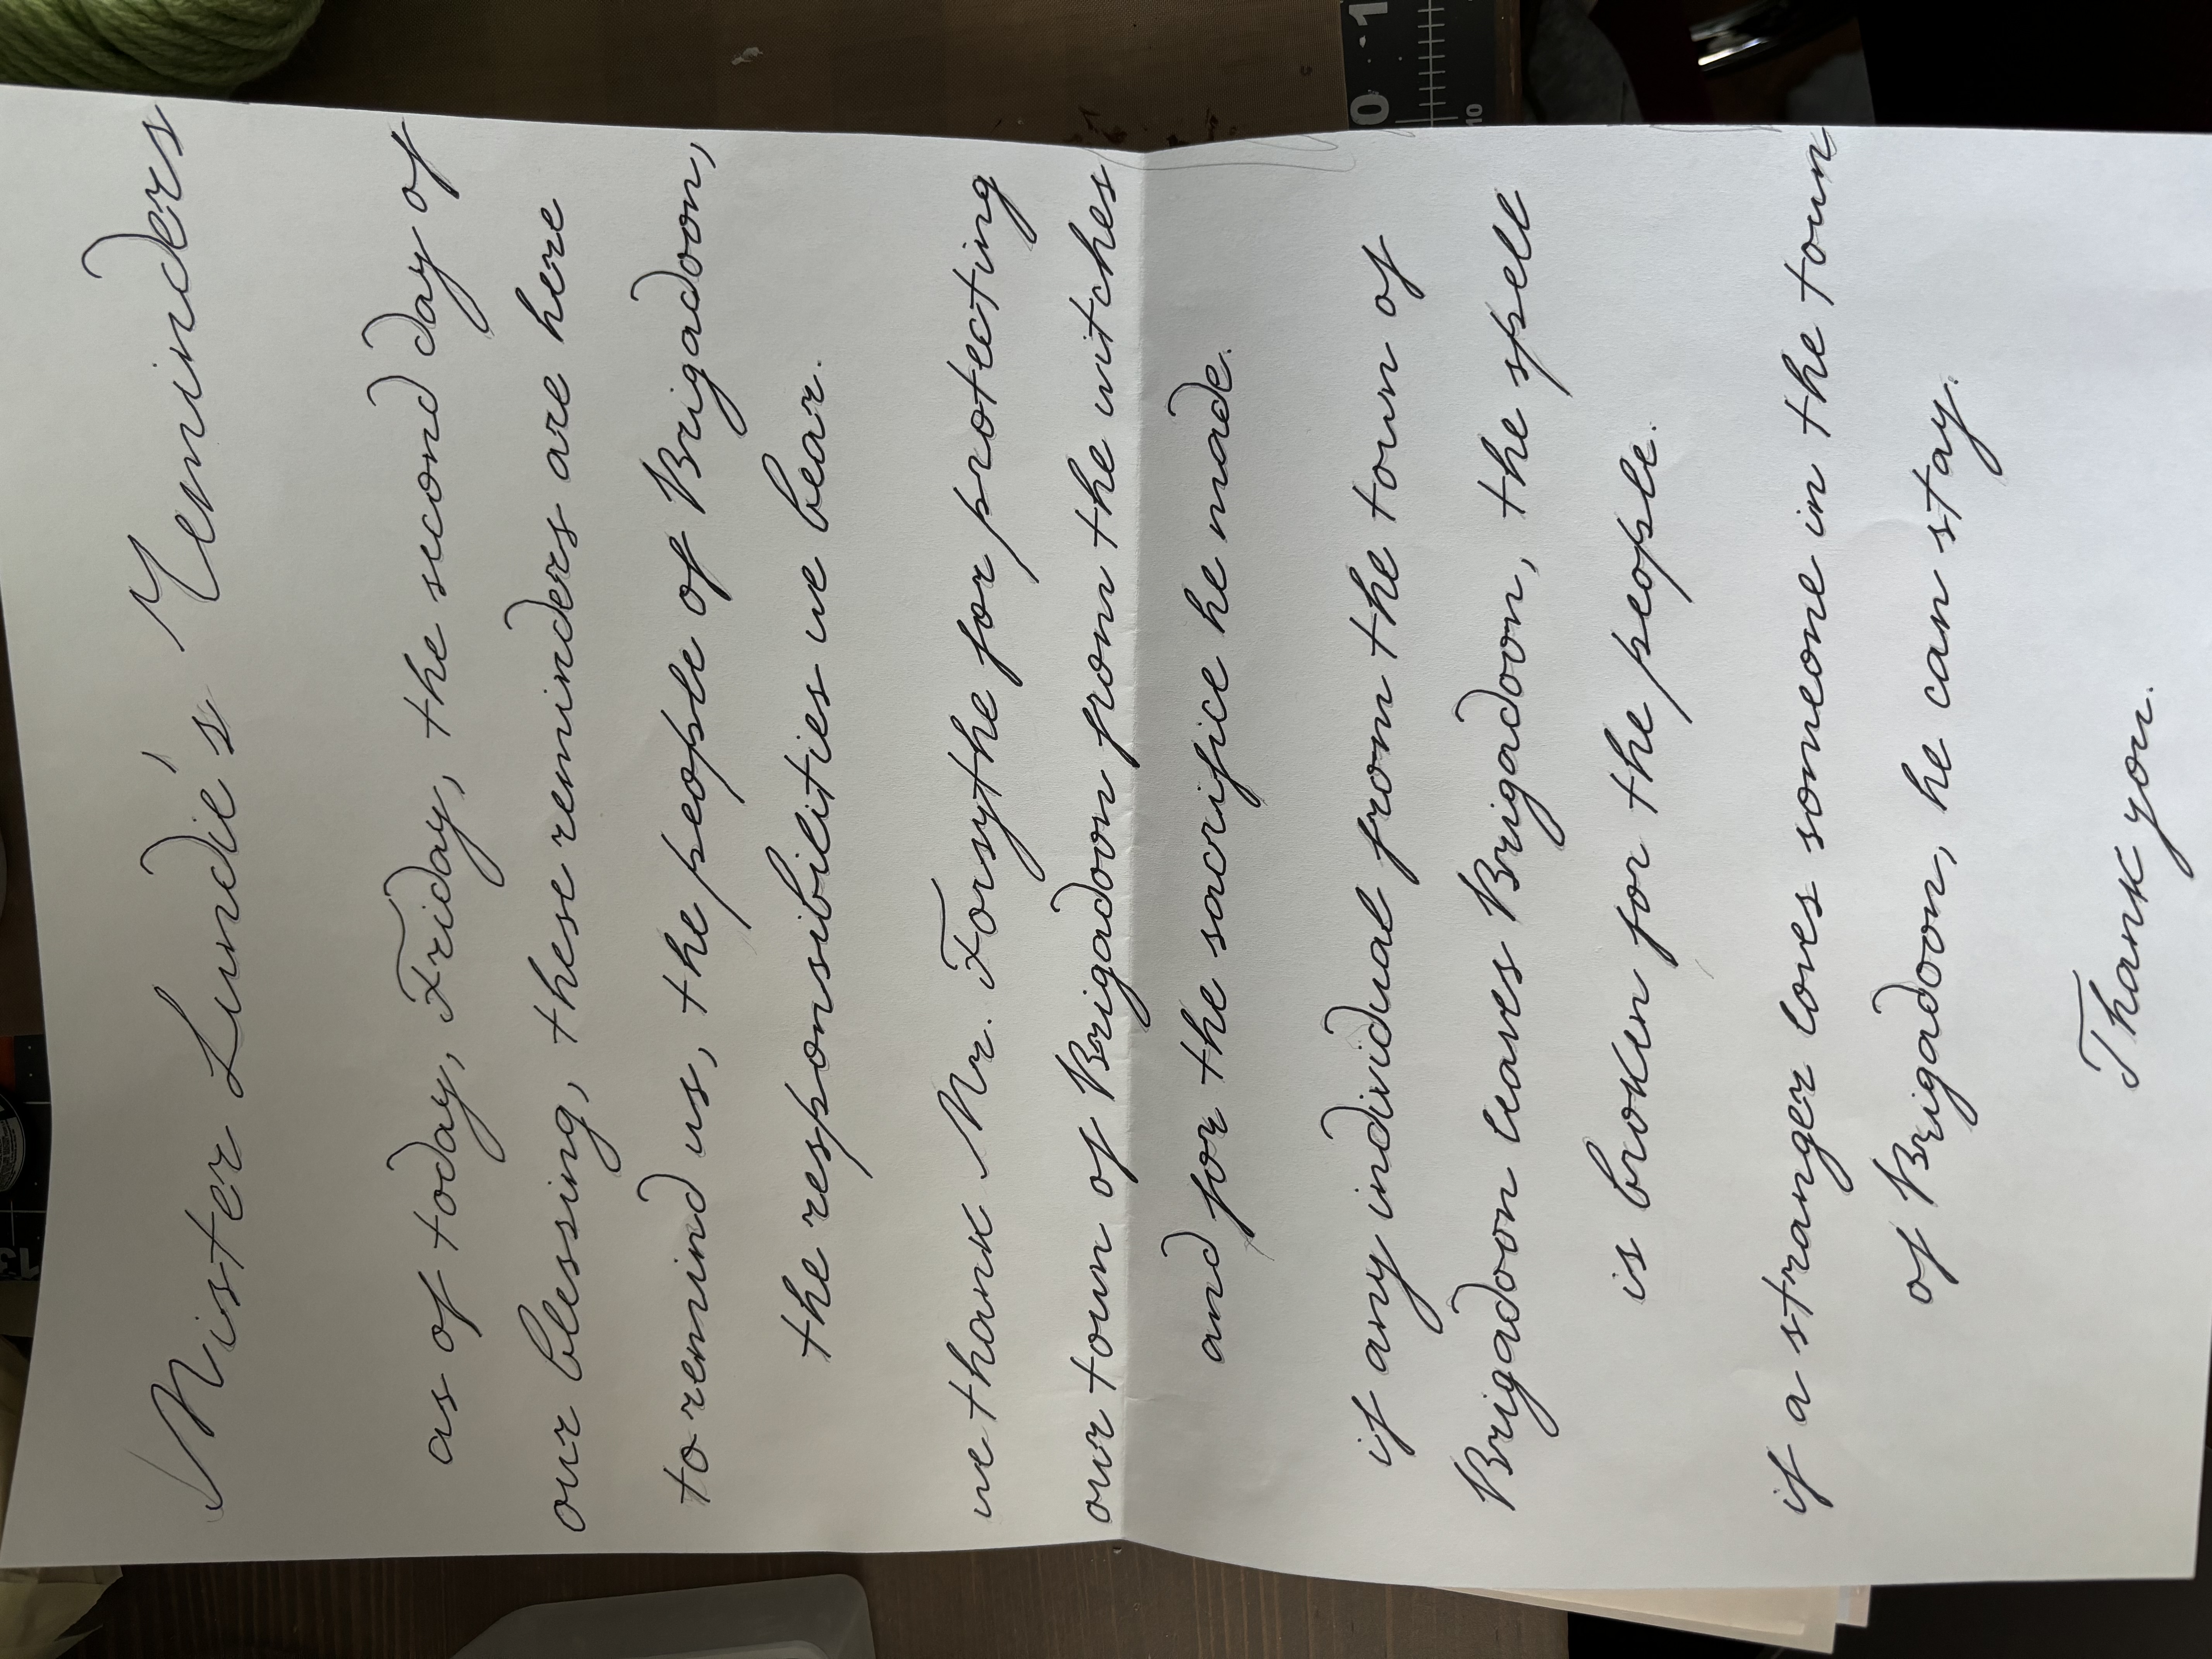 Mister Lundie's Reminders
as of today, Friday, the second day of
our blessing, these reminders are here
to remind us, the people of Brigadoon,
the responsibilities we bear.
we thank Mr. Forsythe for protecting
our town of Brigadoon from the witches
and for the sacrifice he made.
if any individual from the town of
Brigadoon leaves Brigadoon, the spell
is broken for the people.
if a stranger loves someone in the town
of Brigadoon, he can stay.
Thank you.
0 1
10
13